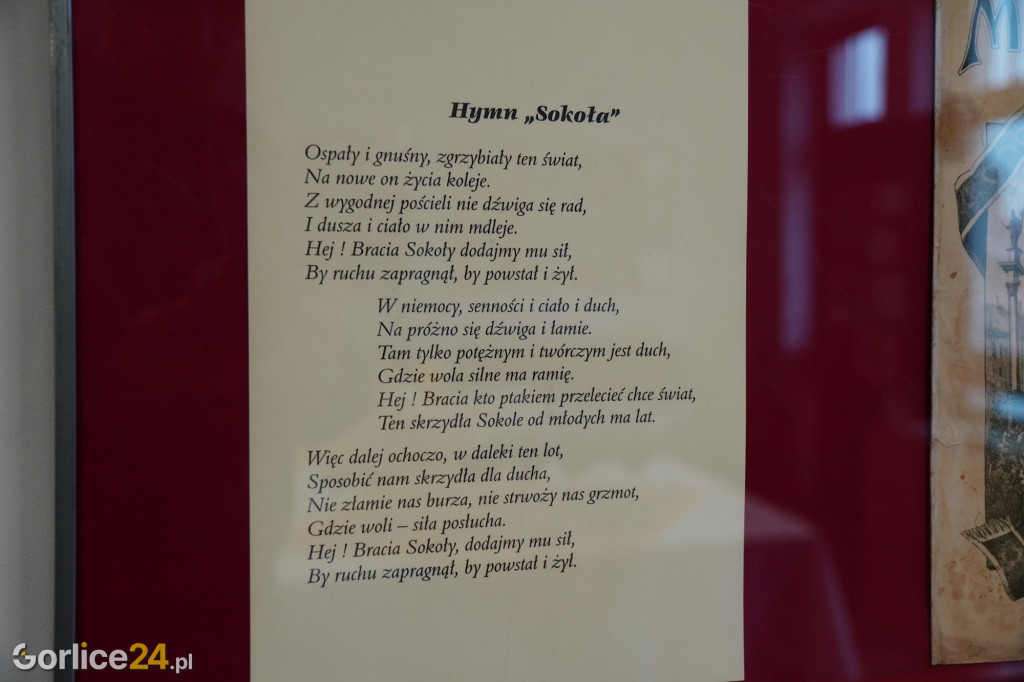 Hymn „Sokoła”
Ospały i gnuśny, zgrzybiały ten świat,
Na nowe on życia koleje.
Z wygodnej pościeli nie dźwiga się rad,
I dusza i ciało w nim mdleje.
Hej ! Bracia Sokoły dodajmy mu sił,
By ruchu zapragnął, by powstał i żył.
W niemocy, senności i ciało i duch,
Na próżno się dźwiga i łamie.
Tam tylko potężnym i twórczym jest duch,
Gdzie wola silne ma ramię.
Hej ! Bracia kto ptakiem przelecieć chce świat,
Ten skrzydła Sokole od młodych ma lat.
Więc dalej ochoczo, w daleki ten lot,
Sposobić nam skrzydła dla ducha,
Nie złamie nas burza, nie strwoży nas grzmot,
Gdzie woli – siła posłucha.
Hej ! Bracia Sokoły, dodajmy mu sił,
By ruchu zapragnął, by powstał i żył.
Gorlice24.pl